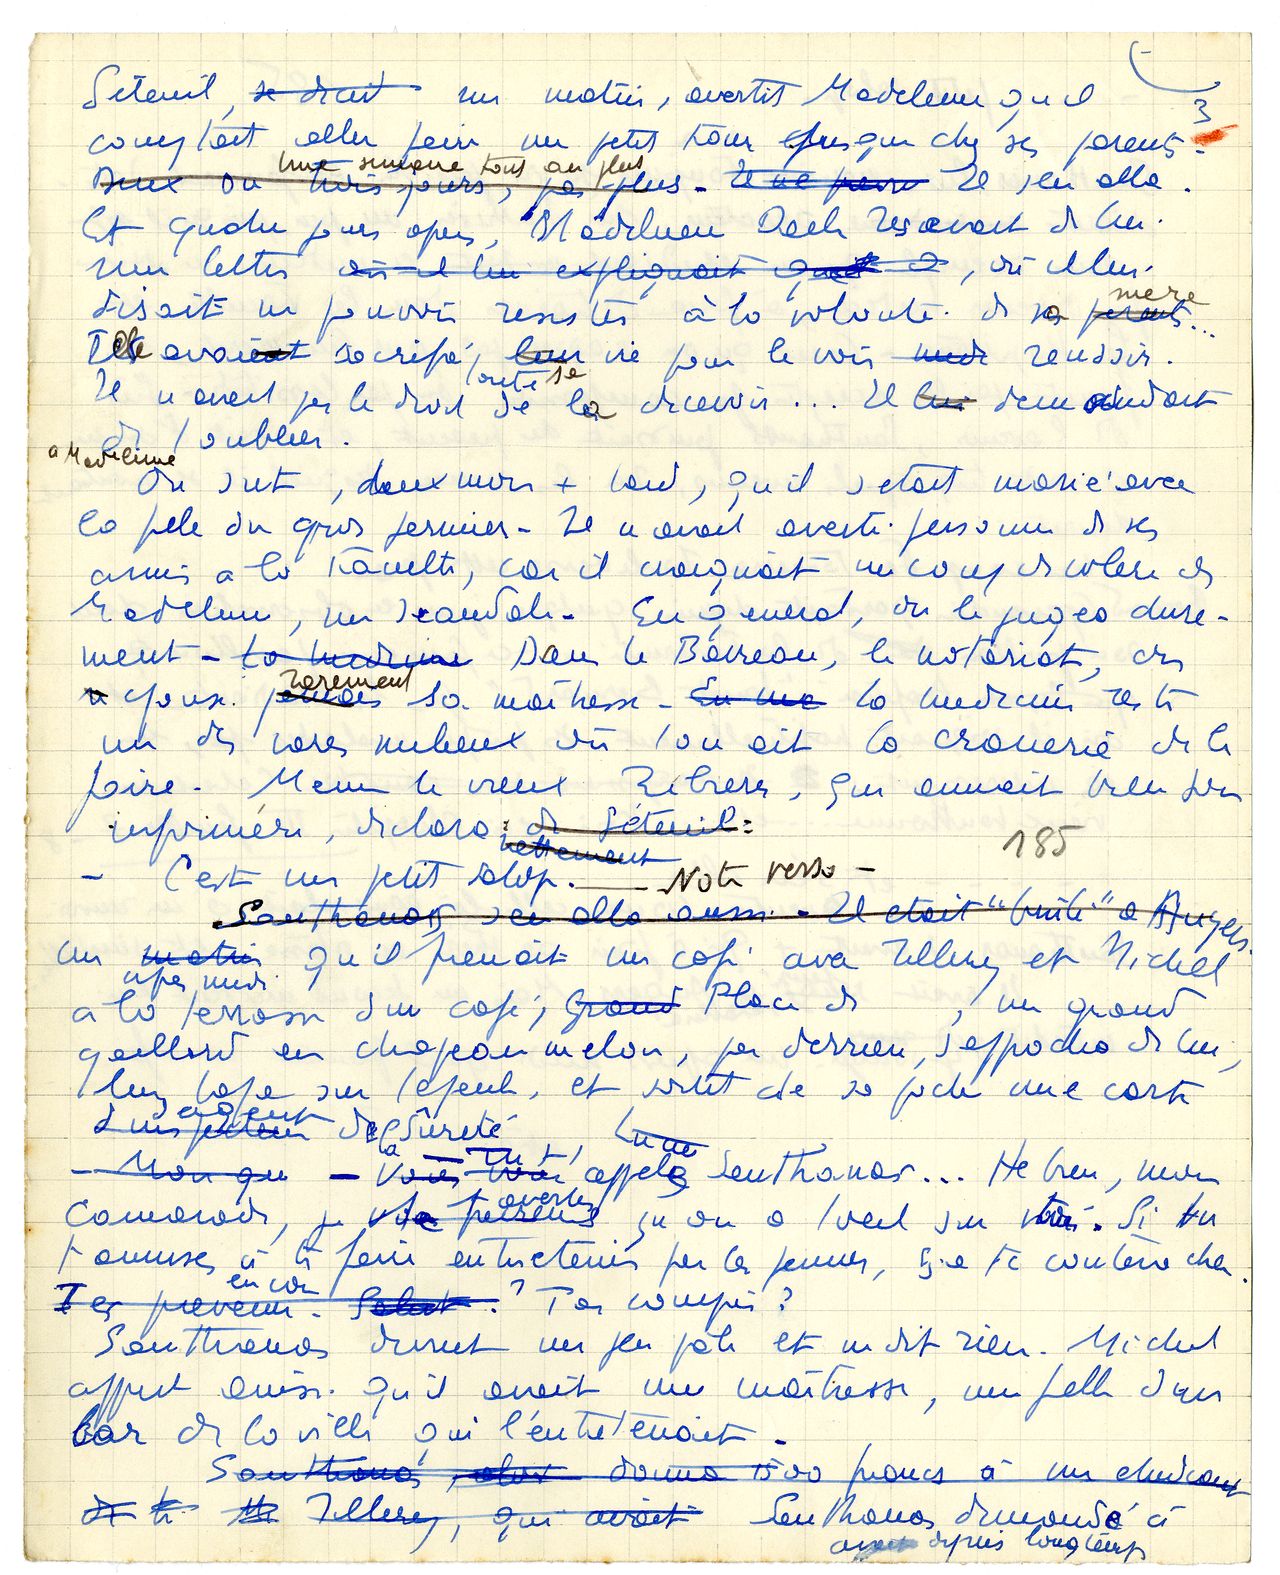 3
Séteuil, se drait un matin, avertit Madeleine qu'il
comptait aller faire un petit tour jusque chez ses parents.
une semaine tout au plus
Deux ou trois jours, pas plus - Il ne Il s'en alla.
Et quatre jours après, Madeleine recevait de lui
une lettre où il lui expliquait que, où il lui
disait ne pouvoir résister à la volonté de sa mère parents...
Elle avait sacrifié leur vie pour le voir réussir.
toute sa
Il n'avait pas le droit de la décevoir... Il lui demandait
de l'oublier.
à Madeleine
On sut, deux mois + tard, qu'il s'était marié avec
la fille du gros fermier - Il n'avait averti personne de ses
amis à la Faculté, car il craignait un coup de colère de
Madeleine, un scandale - En général, on le jugea dure-
ment - La médecine Dans le Barreau, le notariat, on
rarement
n'épouse jamais sa maîtresse - En me la médecine reste
un des rares milieux où l'on ait la crânerie de le
faire - Même le vieux, qui aimait bien son
infirmière, déclara : de Séteuil :
nettement
185
- C'est un petit salop. — Note verso -
Santhanas s'en alla aussi - Il était "brûlé" à Angers.
un matin qu'il prenait un café avec Tillery et Michel
après midi
à la terrasse d'un café, Grand Place de , un grand
gaillard en chapeau melon, par derrière, s'approcha de lui,
lui tapa sur l'épaule, et sortit de sa poche une carte
d'agent
d'inspecteur de la Sûreté
- Mon que - Vous tu t'appeles Santhanas... Hé bien, mon
avertis
camarade, je te préviens qu'on a l'oeil sur toi. Si tu
t'amuses à te faire entretenir par les femmes, ça te coûtera cher.
encore
T'es prévenu - Salut. ? T'as compris ?
Santhanas devint un peu pâle et ne dit rien. Michel
apprit ainsi qu'il avait une maîtresse, une fille d'un
bar de la ville qui l'entretenait -
Santhanas, alors donna 1500 francs à un
Tillery, qui avait Santhanas demandé à
avait depuis longtemps